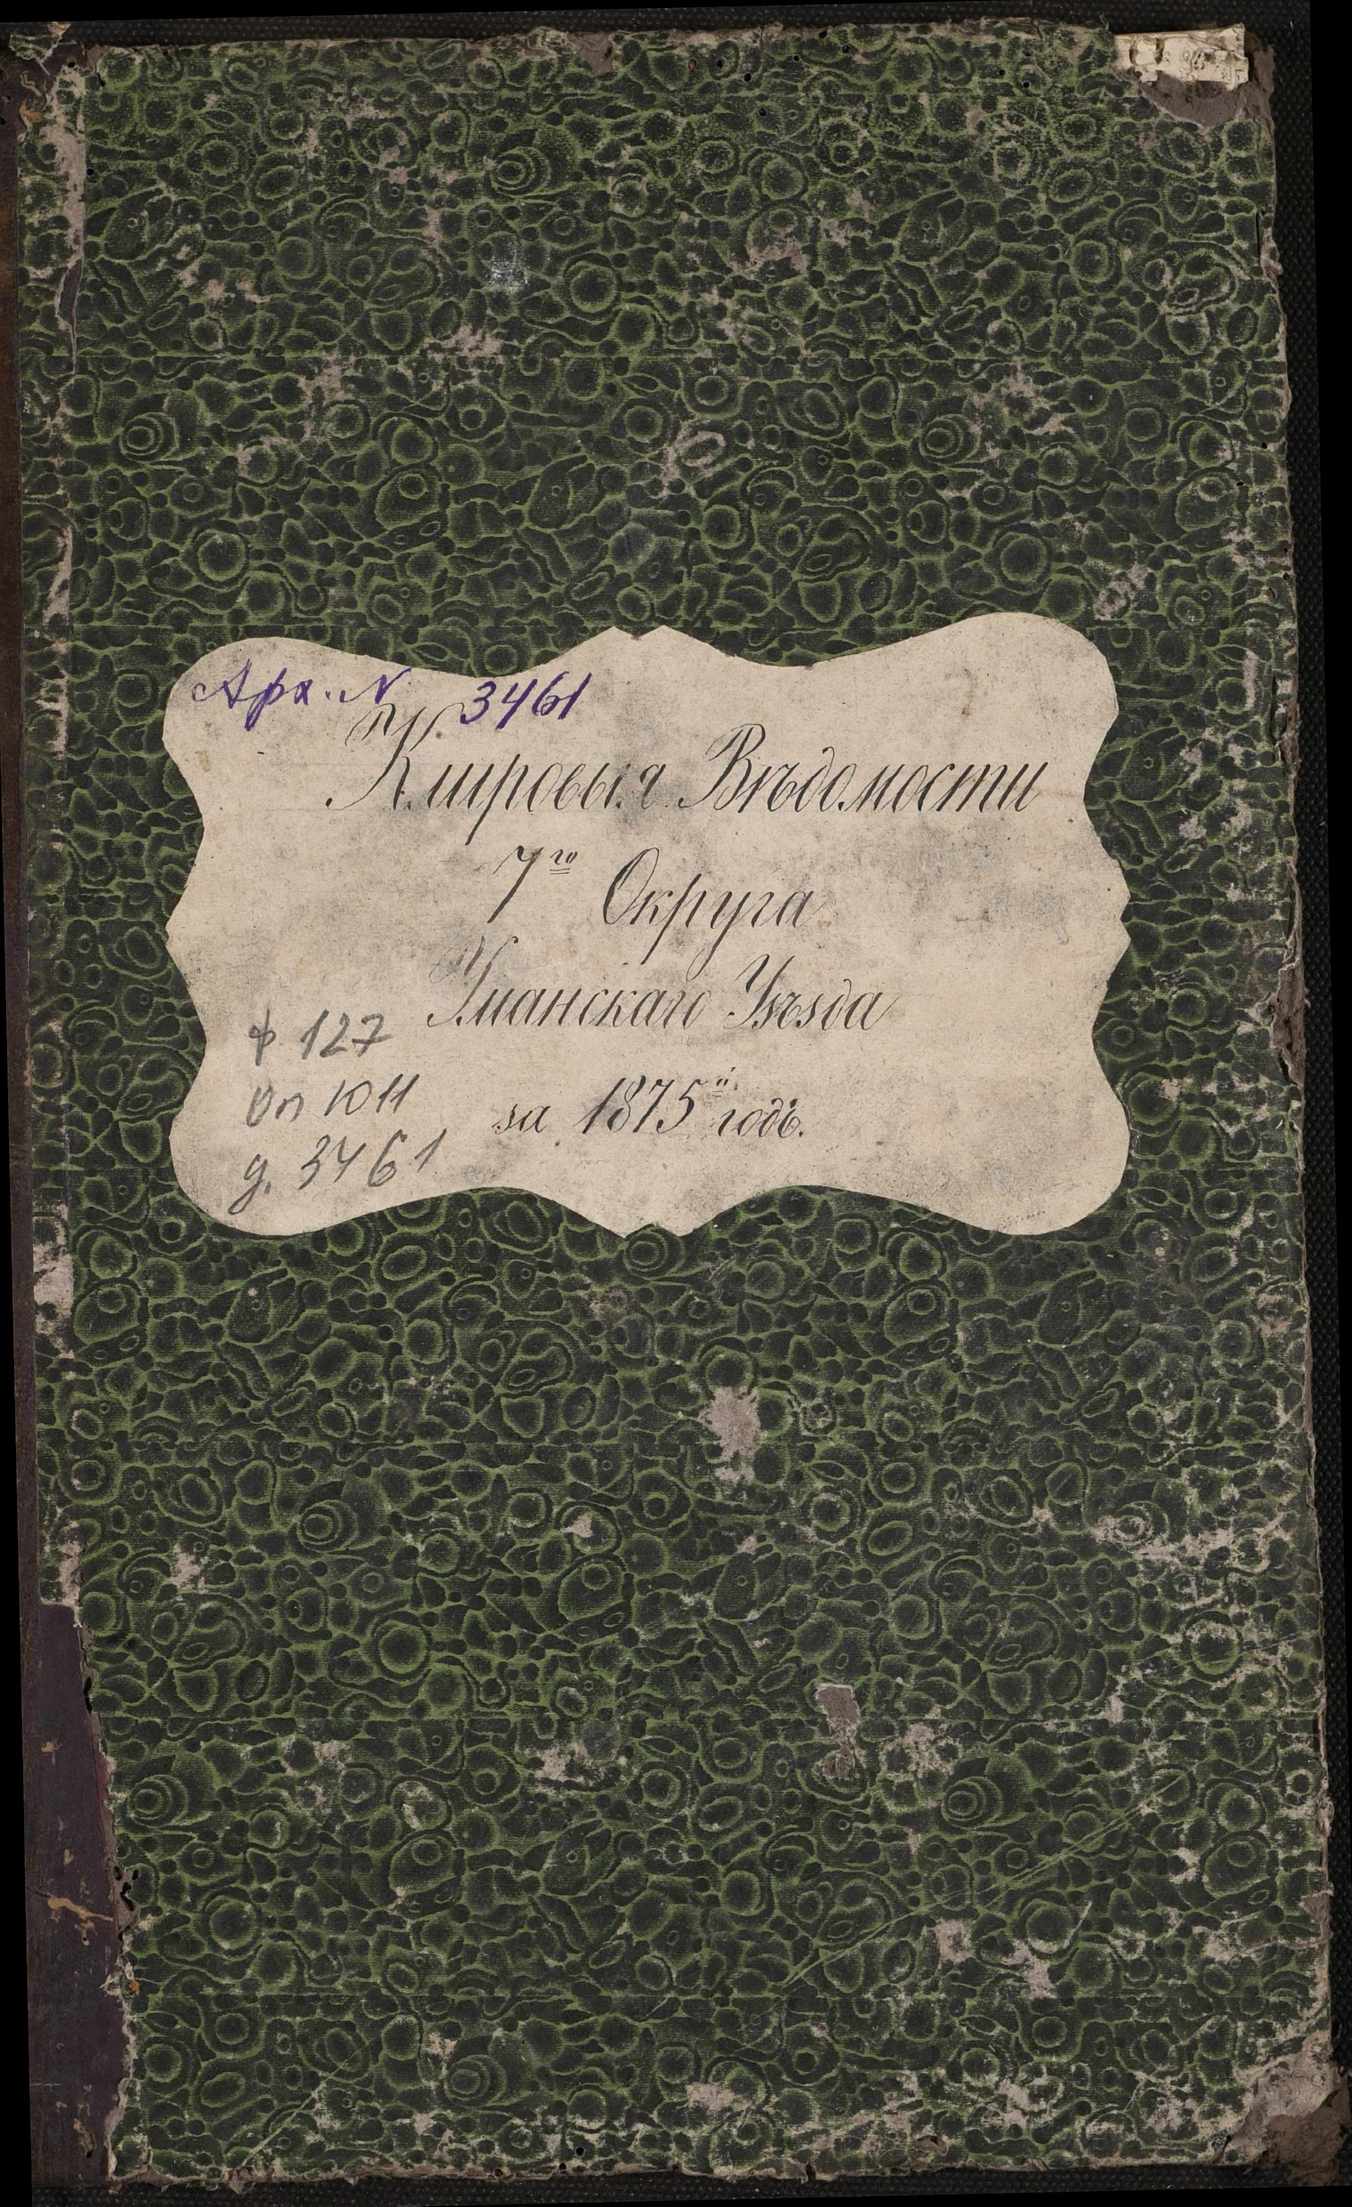 Арх. N 3461
Клировыя Вѣдомости
7го Округа
Уманскаго Уѣзда
за 1875й годъ.
ф. 127
оп 1011
д. 3461